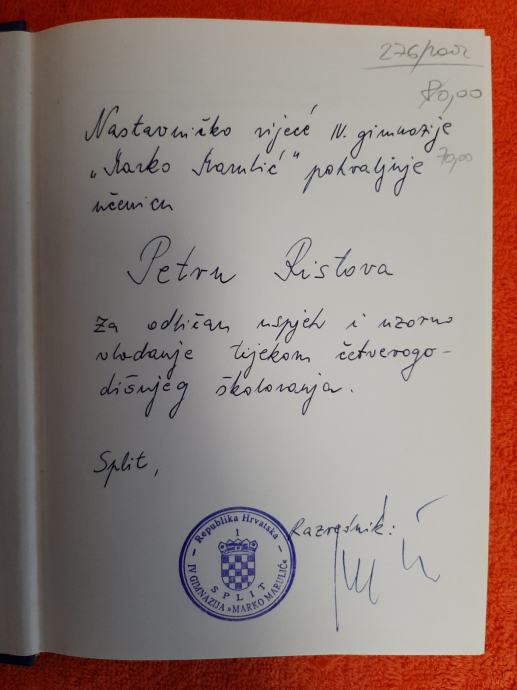 276/2002
80,00
Nastavničko vijeće IV. gimnazije
"Marko Marulić" pohvaljuje
70,00
učenicu
Petru Ristova
za odličan uspjeh i uzorno
vladanje tijekom četverogo-
dišnjeg školovanja.
Split,
Razrednik:
Republika Hrvatska
1
IV GIMNAZIJA »MARKO MARULIĆ«
SPLIT